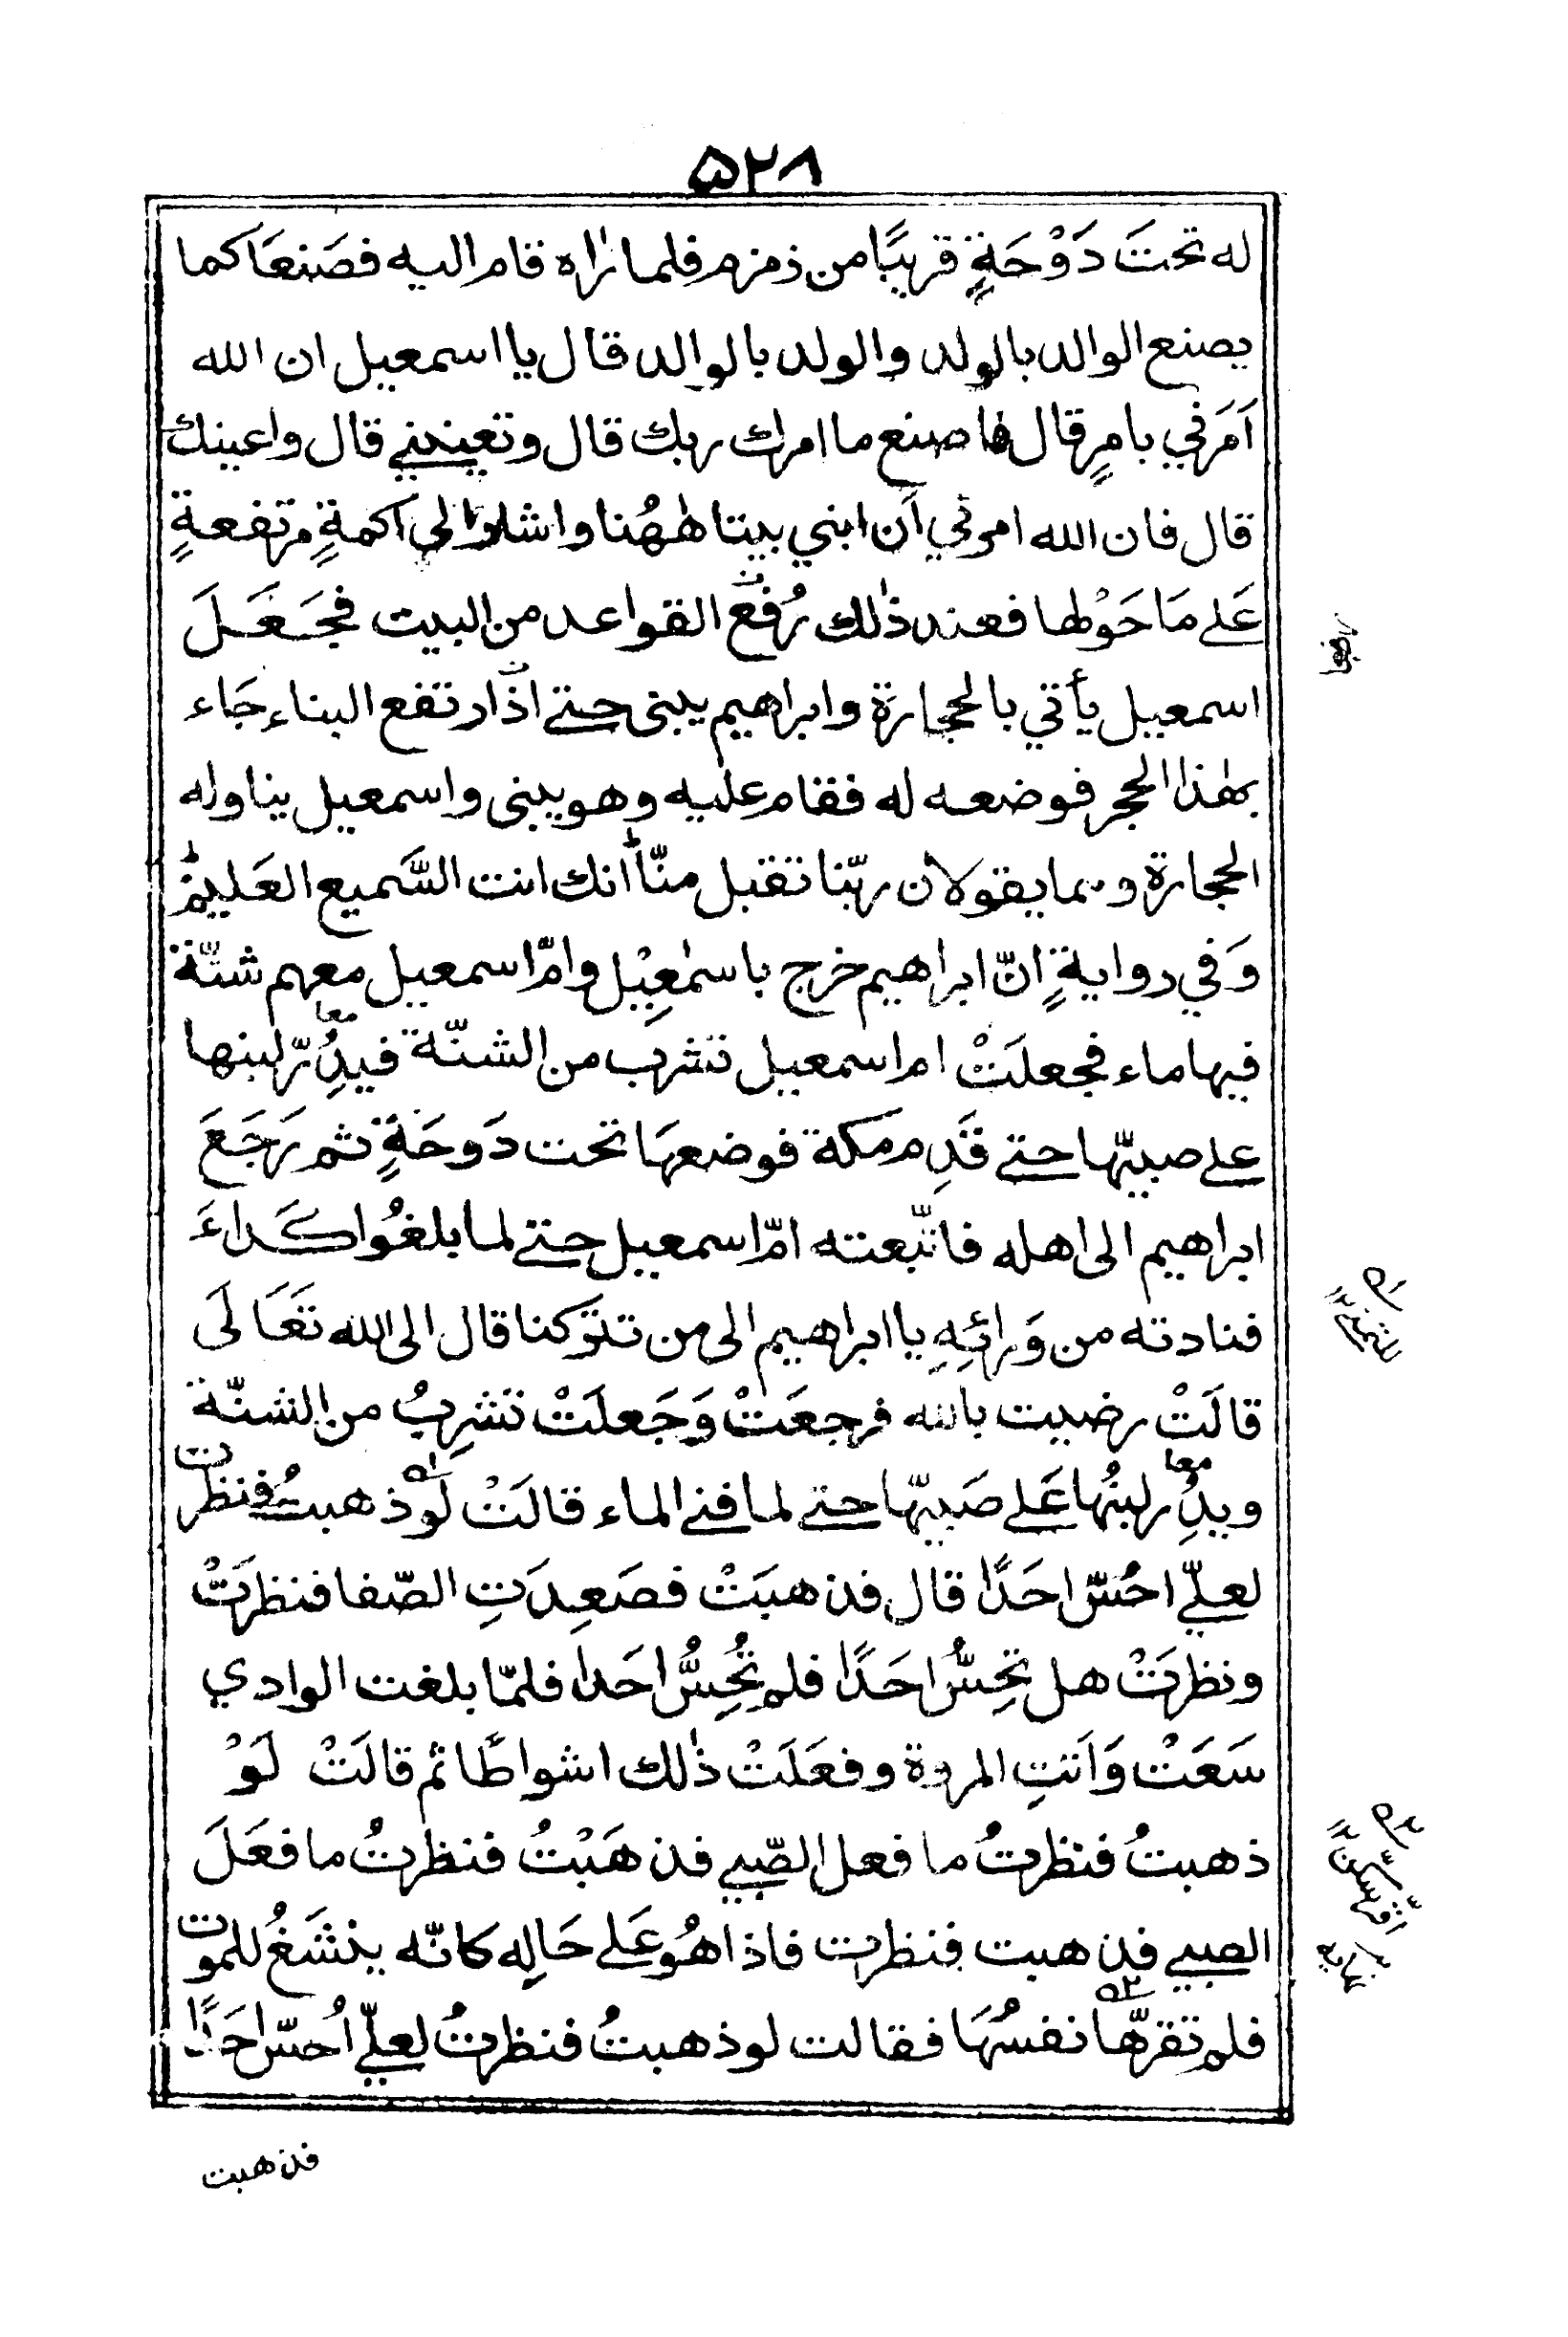 ۵۲۸
له تحتَ دَوْحَةٍ قريبًا من زمزم فلما رٰاه قام اليه فصَنعَا كما
يصنع الوالد بالولد والولد بالوالد قال يا اسمعيل ان الله
اَمَرَني بامرٍ قال فاصنع ما امرك ربك قال وتعينني قال واعينك
قال فان الله امرني اَن ابني بيتا هٰهُنا واشار الى اَكمةٍ مرتفعةٍ
عَلى مَا حَوْلها فعند ذٰلك رُفع القواعد من البيت فجَعَلَ
اسمعيل يأتي بالحجارة وابراهيم يبنى حتى اذا ارتفع البناء جَاء
بهٰذا الحجر فوضعه له فقام عليه وهو يبنى واسمعيل يناوله
الحجارة وهما يقولان ربّنا تقبل منّا انك انت السَّميع العَليم
وَفي روايةٍ انّ ابراهيم خرج باسمٰعِيْل وامّ اسمعيل معهم شنّة
فيها ماء فجعلَتْ ام اسمعيل تشرب من الشنّة فيدِرُّ لبنها
معا
على صبيّها حتى قَدِم مكة فوضعهَا تحت دَوحَةٍ ثم رَجَعَ
ابراهيم الى اهله فاتّبعته امّ اسمعيل حتى لما بلغُوا كَداءَ
فنادته من وَرائِهِ يا ابراهيم الى من تتركنا قال الى الله تَعَالَى
قالَتْ رضيت بالله فرجعَتْ وَجَعلَتْ تشرِبُ من الشنّة
ويدِرُّ لبنُها عَلى صَبيّها حتى لما فنى الماء قالَتْ لَو ذهبتُ فنظرت
معا
لعلّي احُسّ احَدًا قال فذهبَتْ فصَعِدَتِ الصّفا فنظرَتْ
ونظرَتْ هل تحِسُّ احَدًا فلم تُحِسُّ احَدا فلمّا بلغت الوادي
سَعَتْ وَاَتتِ المروة وفعَلَتْ ذٰلك اشواطًا ثم قالَتْ لَوْ
ذهبتُ فنظرتُ ما فعل الصّبي فذهَبْتُ فنظرتُ ما فعَلَ
الصبي فذهبت فنظرت فاذا هُو عَلى حَالِه كانّه ينشَغُ للموت
فلم تقرّها نفسُهَا فقالت لو ذهبتُ فنظرتُ لعلّي اُحسّ احَدًا
فذهبت